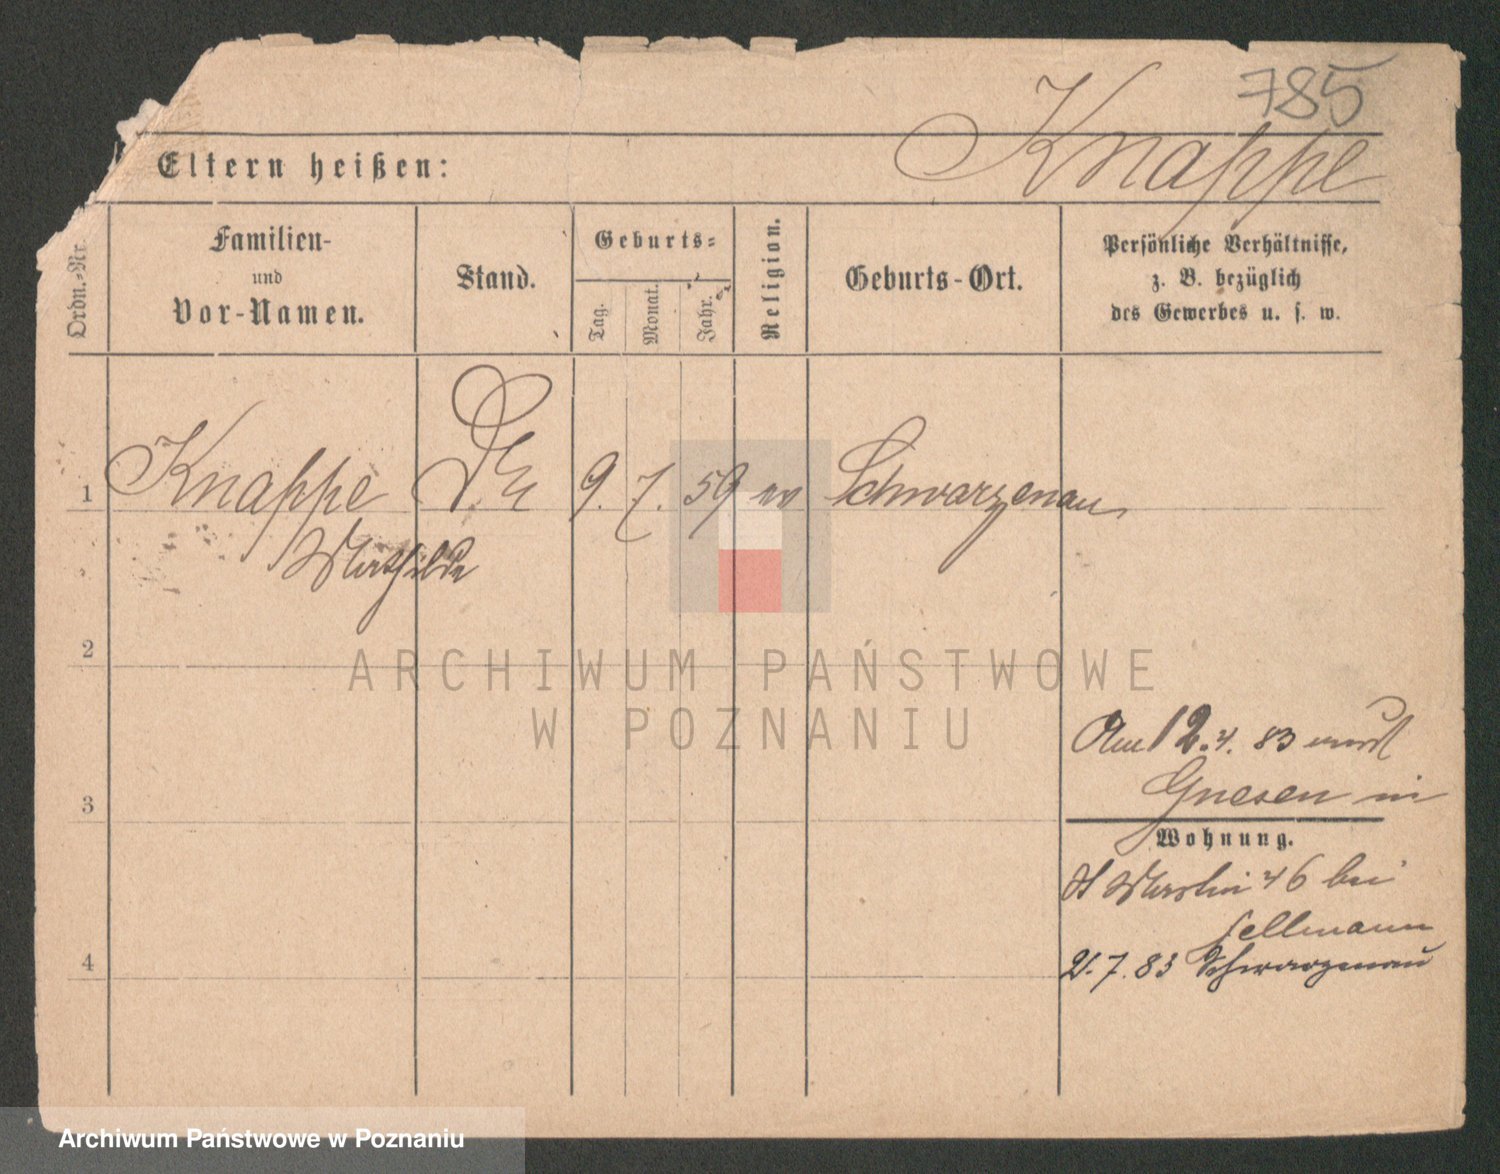 785
Knappe
Eltern heißen:
Ordn.-Nr.
Familien-
und
Vor-Namen.
Stand.
Geburts-
Tag.
Monat.
Jahr.
Religion.
Geburts-Ort.
Persönliche Verhältnisse,
z. B. bezüglich
des Gewerbes u. s. w.
1 Knappe 9. 7. 59 ev Schwarzenau
Mathilde
2
ARCHIWUM PAŃSTWOWE
W POZNANIU
Am 12.4. 83 nach
Gnesen
3
Wohnung.
St Martin 46 bei
Sellmann
4
21.7.83 Schwarzenau
Archiwum Państwowe w Poznaniu